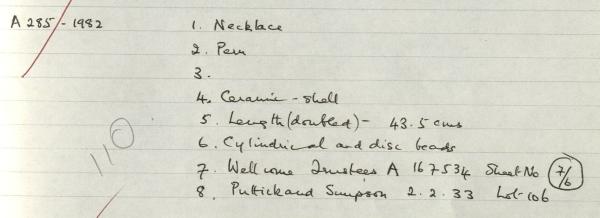 A 285/-1982
1. Necklace
2. Peru
3.
4. Ceramic - shell
5. Length (doubled) - 43.5 cms
6. Cylindrical and disc beads
110
7. Wellcome Trustees A 167534 Sheet No 7/6
8. Puttick and Simpson 2.2.33 Lot-106